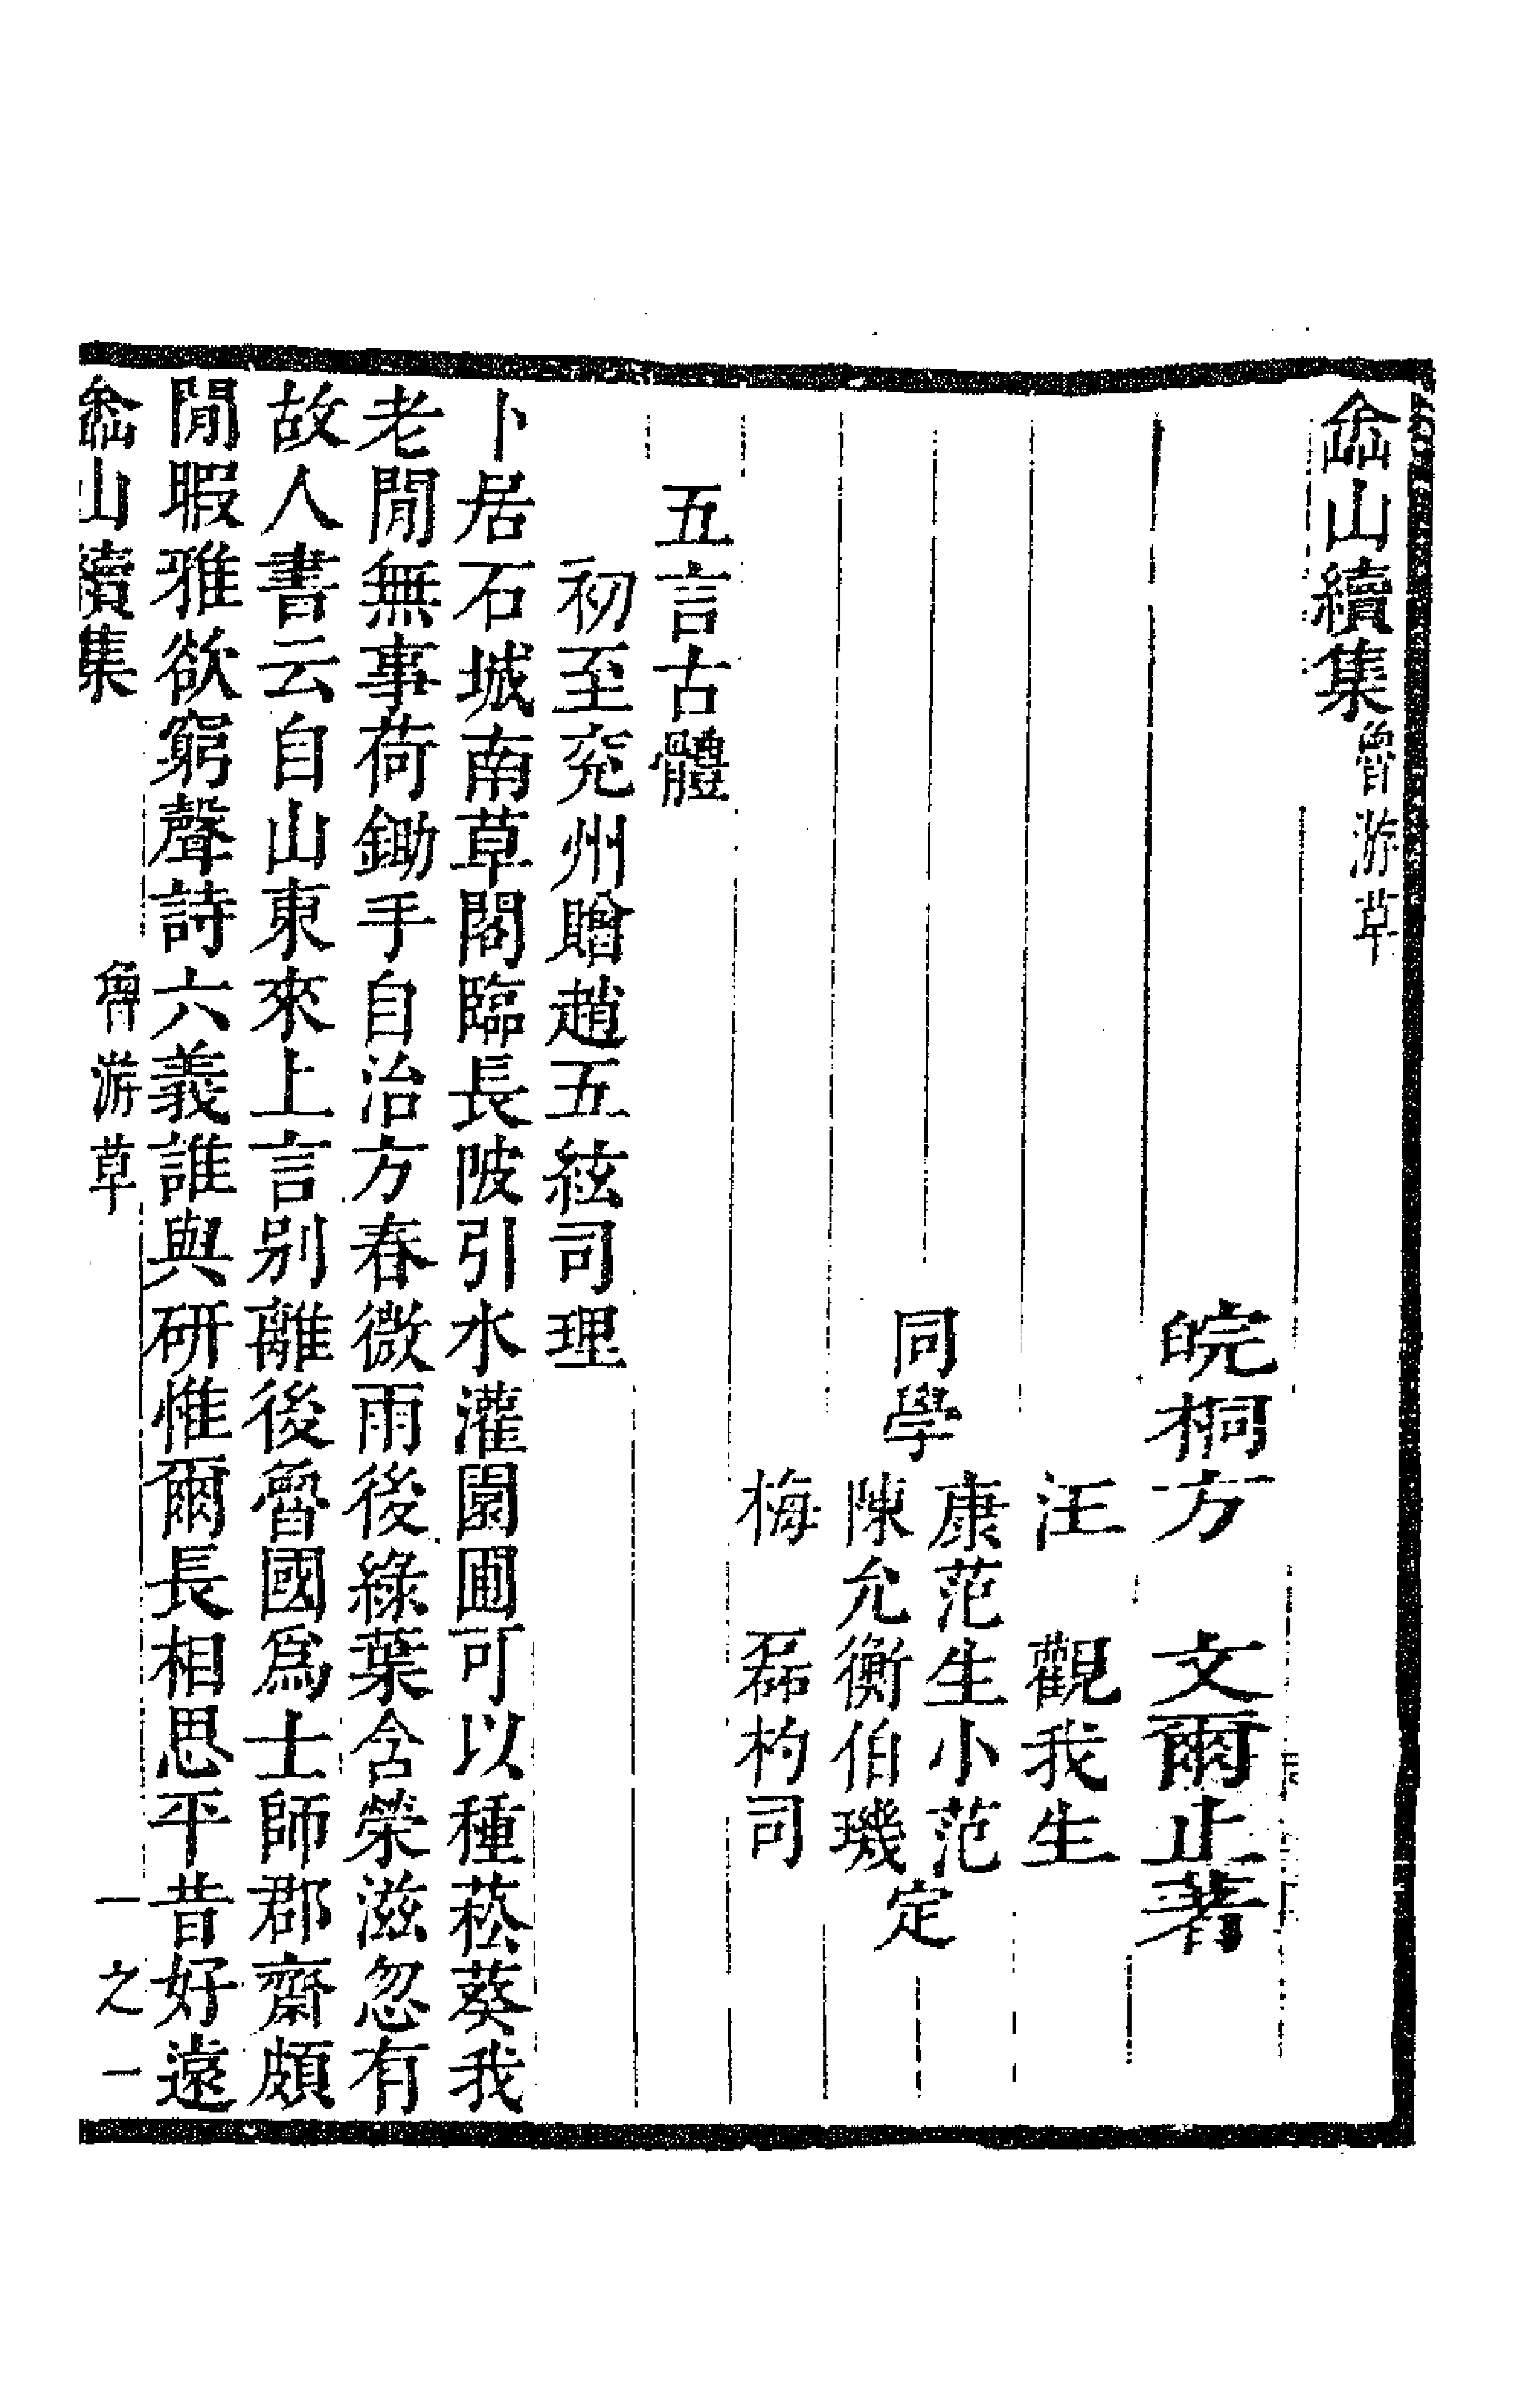 嵞山續集魯游草
皖桐方 文爾止著
汪 觀我生
康范生小范
同學 定
陳允衡伯璣
梅 磊杓司
五言古體
初至兖州贈趙五絃司理
卜居石城南草閣臨長陂引水灌園圃可以種菘葵我
老閒無事荷鋤手自治方春微雨後綠葉含榮滋忽有
故人書云自山東來上言别離後魯國爲士師郡齋頗
閒暇雅欲窮聲詩六義誰與研惟爾長相思平昔好遠
嵞山續集 魯游草 一之一